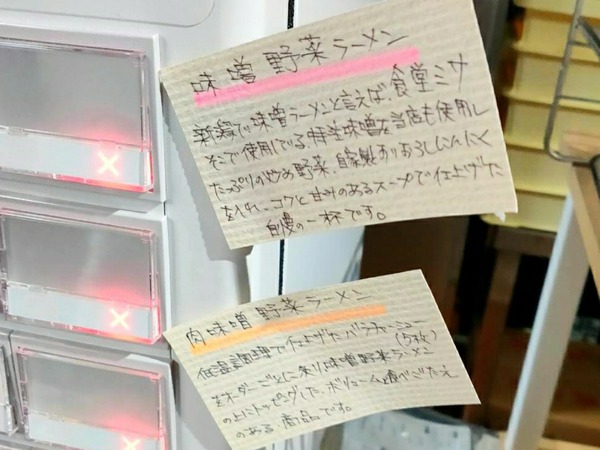 味噌野菜ラーメン
新潟で味噌ラーメンと言えば、食堂ミサ
そこで使用している特注味噌を当店も使用し
たっぷりの炒め野菜、自家製おろしにんにく
を入れ、コクと甘みのあるスープで仕上げた
自慢の一杯です。
肉味噌野菜ラーメン
低温調理で仕上げたバラチャーシュー
(5枚)
をオーダーごとに炙り味噌野菜ラーメン
の上にトッピングした、ボリューム食べごたえ
のある商品です。